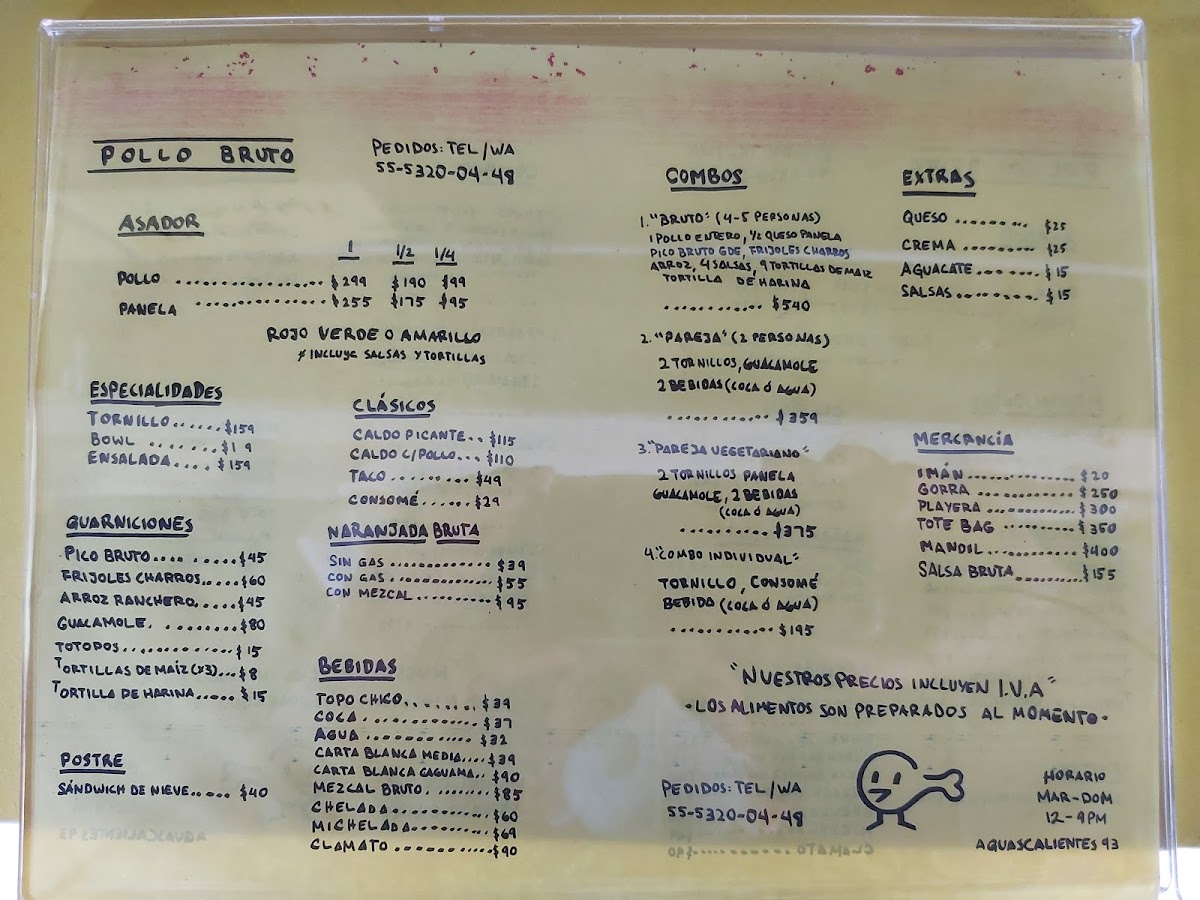 POLLO BRUTO
PEDIDOS: TEL/WA
55-5320-04-48
ASADOR
1 1/2 1/4
POLLO .................. $299 $190 $99
PANELA .................. $255 $175 $95
ROJO VERDE O AMARILLO
* INCLUYE SALSAS Y TORTILLAS
ESPECIALIDADES
TORNILLO...... $159
BOWL ....... $1 9
ENSALADA.... $159
GUARNICIONES
PICO BRUTO.... $45
FRIJOLES CHARROS.... $60
ARROZ RANCHERO..... $45
GUACAMOLE. ........ $80
TOTOPOS............ $15
TORTILLAS DE MAÍZ (X3)... $8
TORTILLA DE HARINA..... $15
POSTRE
SÁNDWICH DE NIEVE..... $40
CLÁSICOS
CALDO PICANTE.. $115
CALDO C/POLLO... $110
TACO ......... $49
CONSOMÉ...... $29
NARANJADA BRUTA
SIN GAS ............ $39
CON GAS ............ $55
CON MEZCAL ......... $95
BEBIDAS
TOPO CHICO......... $39
COCA ............. $37
AGUA ............. $32
CARTA BLANCA MEDIA.... $39
CARTA BLANCA CAGUAMA.. $90
MEZCAL BRUTO. ........ $85
CHELADA............ $60
MICHELADA.......... $69
CLAMATO ........... $90
COMBOS
1. "BRUTO" (4-5 PERSONAS)
1 POLLO ENTERO, 1/2 QUESO PANELA
PICO BRUTO GDE, FRIJOLES CHARROS
ARROZ, 4 SALSAS, 9 TORTILLAS DE MAIZ
TORTILLA DE HARINA
............ $540
2. "PAREJA" (2 PERSONAS)
2 TORNILLOS, GUACAMOLE
2 BEBIDAS (COCA Ó AGUA)
............ $359
3. "PAREJA VEGETARIANO"
2 TORNILLOS PANELA
GUACAMOLE, 2 BEBIDAS
(COCA Ó AGUA)
.......... $375
4. "COMBO INDIVIDUAL"
TORNILLO, CONSOMÉ
BEBIDA (COCA Ó AGUA)
............ $195
EXTRAS
QUESO ......... $25
CREMA ......... $25
AGUACATE....... $15
SALSAS.......... $15
MERCANCÍA
IMÁN ............... $20
GORRA ............. $250
PLAYERA ........... $300
TOTE BAG .......... $350
MANDIL............. $400
SALSA BRUTA......... $155
"NUESTROS PRECIOS INCLUYEN I.V.A"
-LOS ALIMENTOS SON PREPARADOS AL MOMENTO-
PEDIDOS: TEL/WA
55-5320-04-48
HORARIO
MAR-DOM
12-9PM
AGUASCALIENTES 93